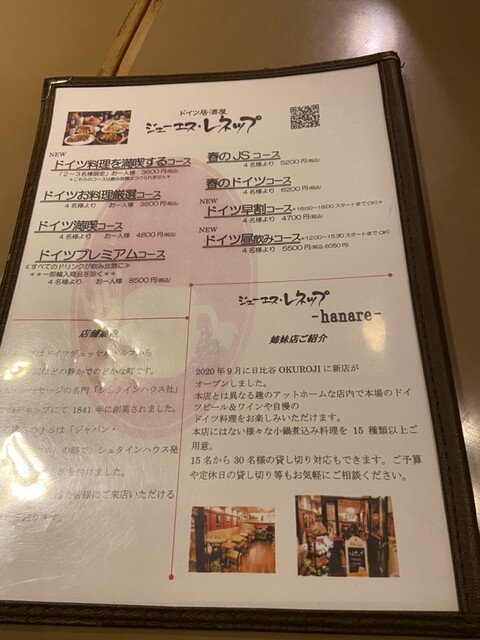 ドイツ居酒屋
ジェーエス・レネップ
NEW
ドイツ料理を満喫するコース
「2～3名様限定」 お一人様 3800円(税込)
*こちらのコースは飲み放題はつけられません*
ドイツお料理厳選コース
4名様より お一人様 3800円(税込)
ドイツ満喫コース
4名様より お一人様 4800円(税込)
ドイツプレミアムコース
≪すべてのドリンクが飲み放題に≫
**一部輸入商品を除く**
4名様より お一人様 8500円(税込)
春のJSコース
4名様より 5200円(税込)
春のドイツコース
4名様より 6200円(税込)
NEW
ドイツ早割コース *16:00～18:00スタートまでOK!*
4名様より 4700円(税込)
NEW
ドイツ昼飲みコース *12:00～15:30スタートまでOK!*
4名様より 5500円(税込6050円)
店舗
はドイツデュッセルドルフから
間ほどの静かでのどかな町です。
ーセージの名門「シュタインハウス社」
ネップにて 1841 年に創業されました。
JSは「ジャパン・
の略で、シュタインハウス発
を付けました。
皆様にご来店いただける
おります。
ジェーエス・レネップ
-hanare-
姉妹店ご紹介
2020年9月に日比谷 OKUROJI に新店が
オープンしました。
本店とは異なる趣のアットホームな店内で本場のドイ
ツビール＆ワインや自慢の
ドイツ料理をお楽しみいただけます。
本店にはない様々な小鍋煮込み料理を 15 種類以上ご
用意。
15名から30名様の貸し切り対応もできます。ご予算
や定休日の貸し切り等もお気軽にご相談ください。